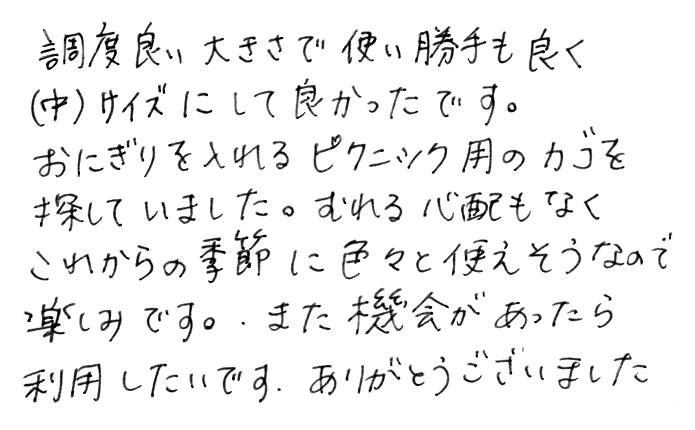 調度良い大きさで使い勝手も良く
(中)サイズにして良かったです。
おにぎりを入れるピクニック用のカゴを
探していました。むれる心配もなく
これからの季節に色々と使えそうなので
楽しみです。.また機会があったら
利用したいです.ありがとうございました